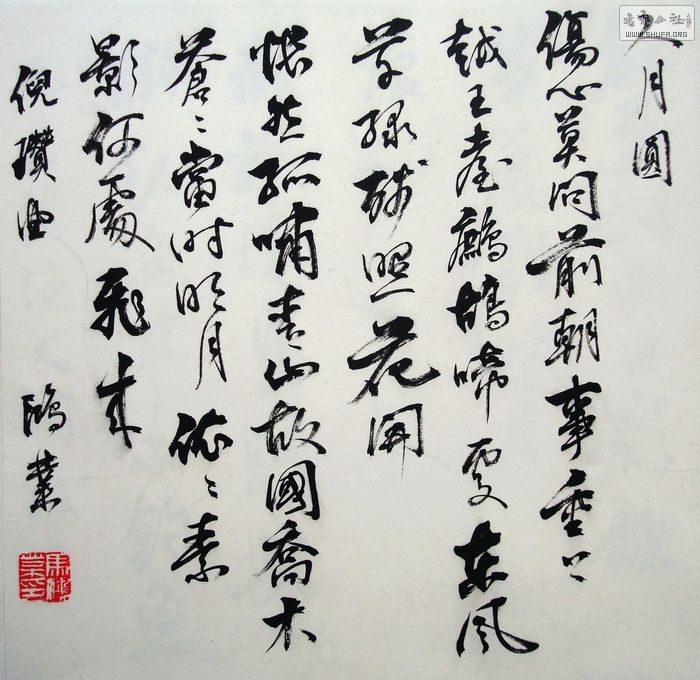 人月圓
傷心莫問前朝事重上
越王臺鷓鴣啼處東風
草綠殘照花開
悵然孤嘯青山故國喬木
蒼〻當時明月依〻素
影何處飛來
倪瓚曲
鴻業
WWW.SHUFA.ORG